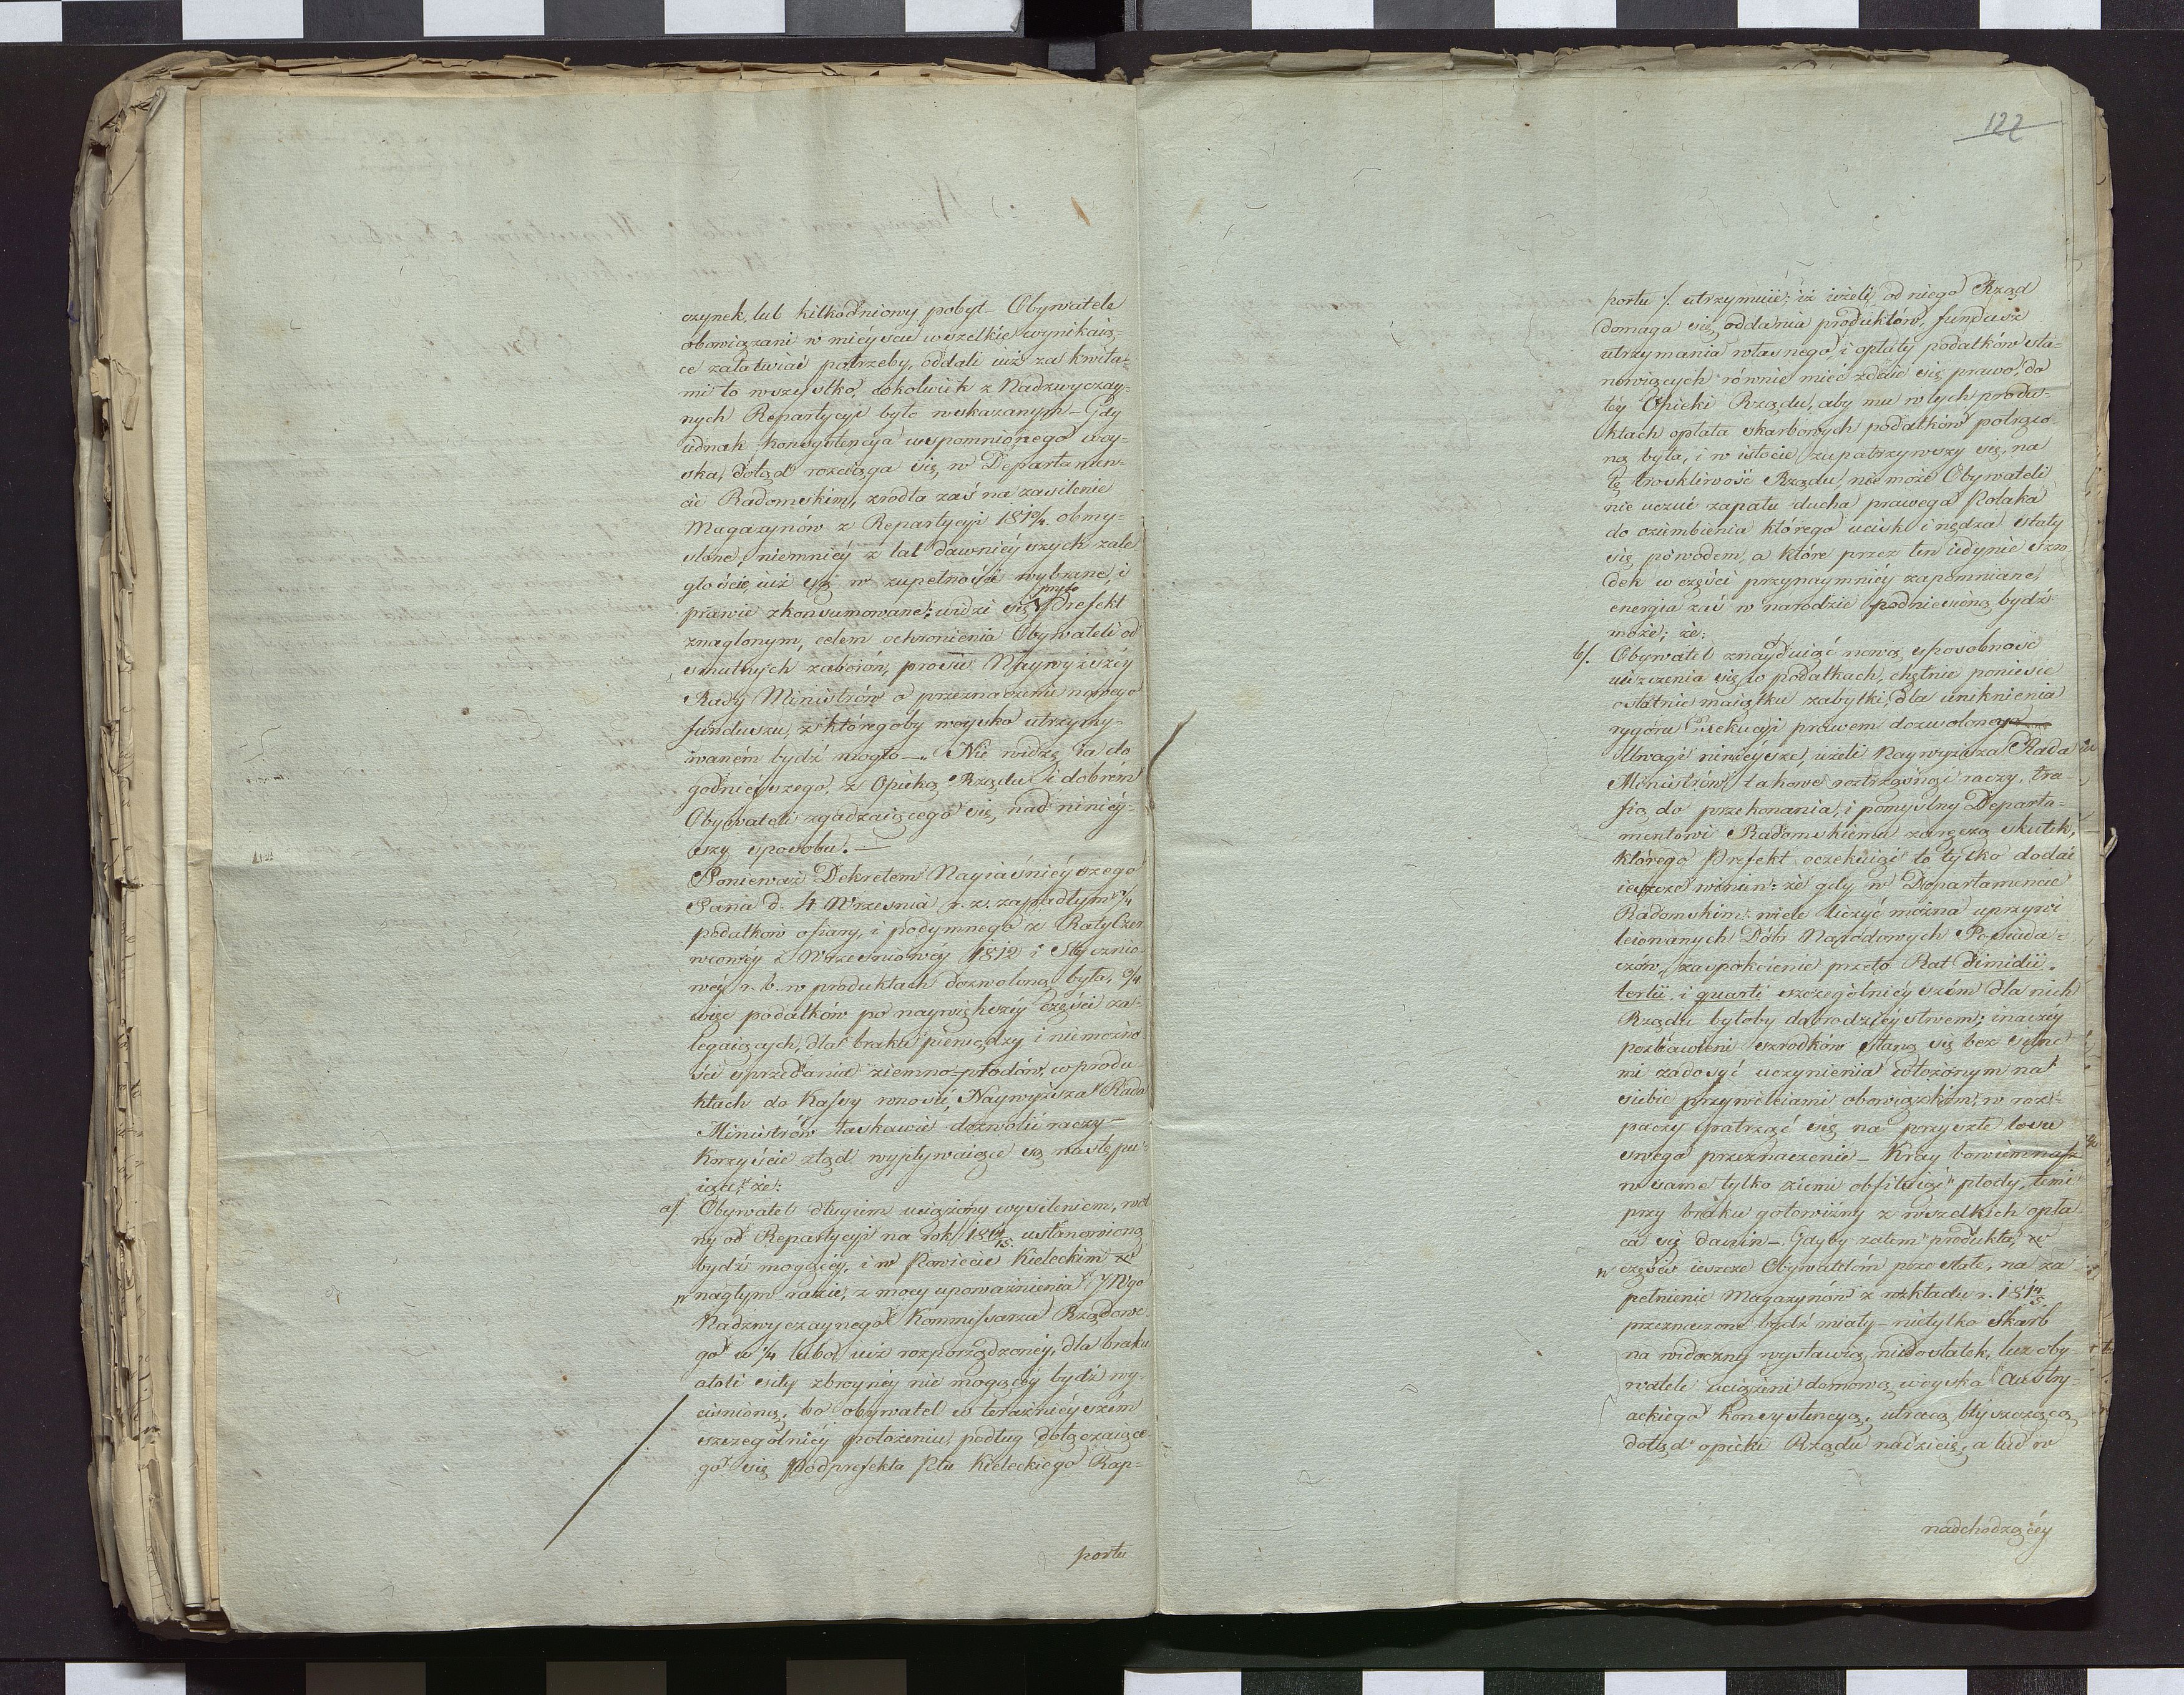 czynek, lub kilkodniowy pobyt Obywatele
obowiązani w mieyscu wszelkie wynikaią-
ce załatwiać potrzeby, oddali iuż za kwita-
mi to wszystko, cokolwiek z Nadzwyczay-
nych Repartycyi było wskazanym – Gdy
iednak konsystencya wspomnionego woy-
ska, dotąd rozciąga się, w Departamen-
cie Radomskim, zrodła zaś na zasilenie
Magazynów z Repartycyi 1813/4. obmy-
slone, niemniéy z lat dawniéyszych zale
głoście, iuż są w zupełności wybrane, i
prawie zkonsumowane; widzi się przeto Prefekt
znaglonym, celem ochronienia Obywateli od
smutnych zaborów, prosić Naywyższéy
Rady Ministrów o przeznaczenie nowego
funduszu, z któregoby woysko utrzymy-
waném bydź mogło –. Nie widzę ia do
godnieyszego, z Opieką Rządu i dobrém
Obywateli zgadzaiącego się, nad niniéy-
szy sposobu. –
Ponieważ Dekretem Nayiaśniéyszego
Pana d. 4. Września r. z. zapadłym 1/4
podatków ofiary, i podymnego z Raty Czer
wcowéy i Wrzesniowéy 1812 i Stycznio-
wéy r. b. w produktach dozwoloną była, 3/4
więc podatków po naywiększéy części za-
legaiących, dla braku pieniędzy i niemożno
ści sprzedania ziemno-płodów, w produ-
ktach do Kassy wnosić, Naywyższa Rada
Ministrów łaskawie dozwolić raczy –
Korzyście ztąd wypływaiące są następu-
iące, że:
a/. Obywatel długim uciążony wysileniem, wol
ny od Repartycyi na rok 1814/15. ustanowioną
bydź mogącéy, i w Powiecie Kieleckim w
nagłym razie, z mocy upoważnienia JWgo
Nadzwyczaynego Kommissarza Rządowe-
go w 1/4 lubo iuż rozporządzonéy, dla braku
atoli siły zbroynéy nie mogącéy bydź wy-
ciśnioną, bo obywatel w teraznieyszém
szczególniéy położeniu, podług dołączaiące-
go się Podprefekta Ptu Kieleckiego Rap-
portu
122
portu /. utrzymuie; iż ieżeli od niego Rząd
domaga się, oddania produktów, fundusz
utrzymania własnego, i opłaty podatków sta-
nowiących równie mieć zdaie się prawo, do
téy Opieki Rządu, aby mu w tych produ-
ktach opłata skarbowych podatków potrąco
ną była, i w istocie zapatrzywszy się, na
tę troskliwość Rządu, nie może Obywateli
nie uczuć zapału ducha prawego Polaka
do oziembienia którego ucisk i nędza stały
się powodem, a które przez ten iedynie szro
dek w części przynaymniéy zapomniane,
energia zaś w narodzie podniesioną bydź
może; że:
b/. Obywatel znayduiąć nową sposobność
uiszczenia się w podatkach, chętnie poniesie
ostatnie maiątku zabytki, dla uniknienia
rygoru Exekucyi prawem dozwolonego
Uwagi ninieysze, ieżeli Naywyższa Rada
Ministrów takowe roztrząsnąć raczy, tra-
fią do przekonania, i pomyslny Departa-
mentowi Radomskiemu zaręczą skutek,
którego Prefekt oczekuiąć to tylko dodać
ieszcze winien: że gdy w Departamencie
Radomskim wiele liczyć można uprzywi
leiowanych Dóbr Narodowych Posiada-
czów, zaspokoienie przeto Rat dimidii,
tertii, i quarti szczególniéyszém dla nich
Rządu byłoby dobrodziéystwem; inaczéy
pozbawieni szrodków staną się bez silne
mi zadosyć uczynienia włożonym na
siebie przywileiami obowiązkóm, w roz-
paczy patrząć się na przyszłe losu
swego przeznaczenie – Kray bowiem nasz
w same tylko ziemi obfituiąć płody, temi
przy braku gotowizny z wszelkich opła-
ca się danin – Gdyby zatem produkta, w
części ieszcze Obywatelóm pozostałe, na za
pełnienie Magazynów z rozkładu r. 1814/5.
przeznaczone bydź miały – nietylko Skarb
na widoczny wystawią niedostatek, lecz oby-
watele uciążeni domową woyska Austry-
ackiego konsystencyą, utracą błyszczącą
dotąd opieki Rządu nadzieię, a lud w
nadchodzącéy